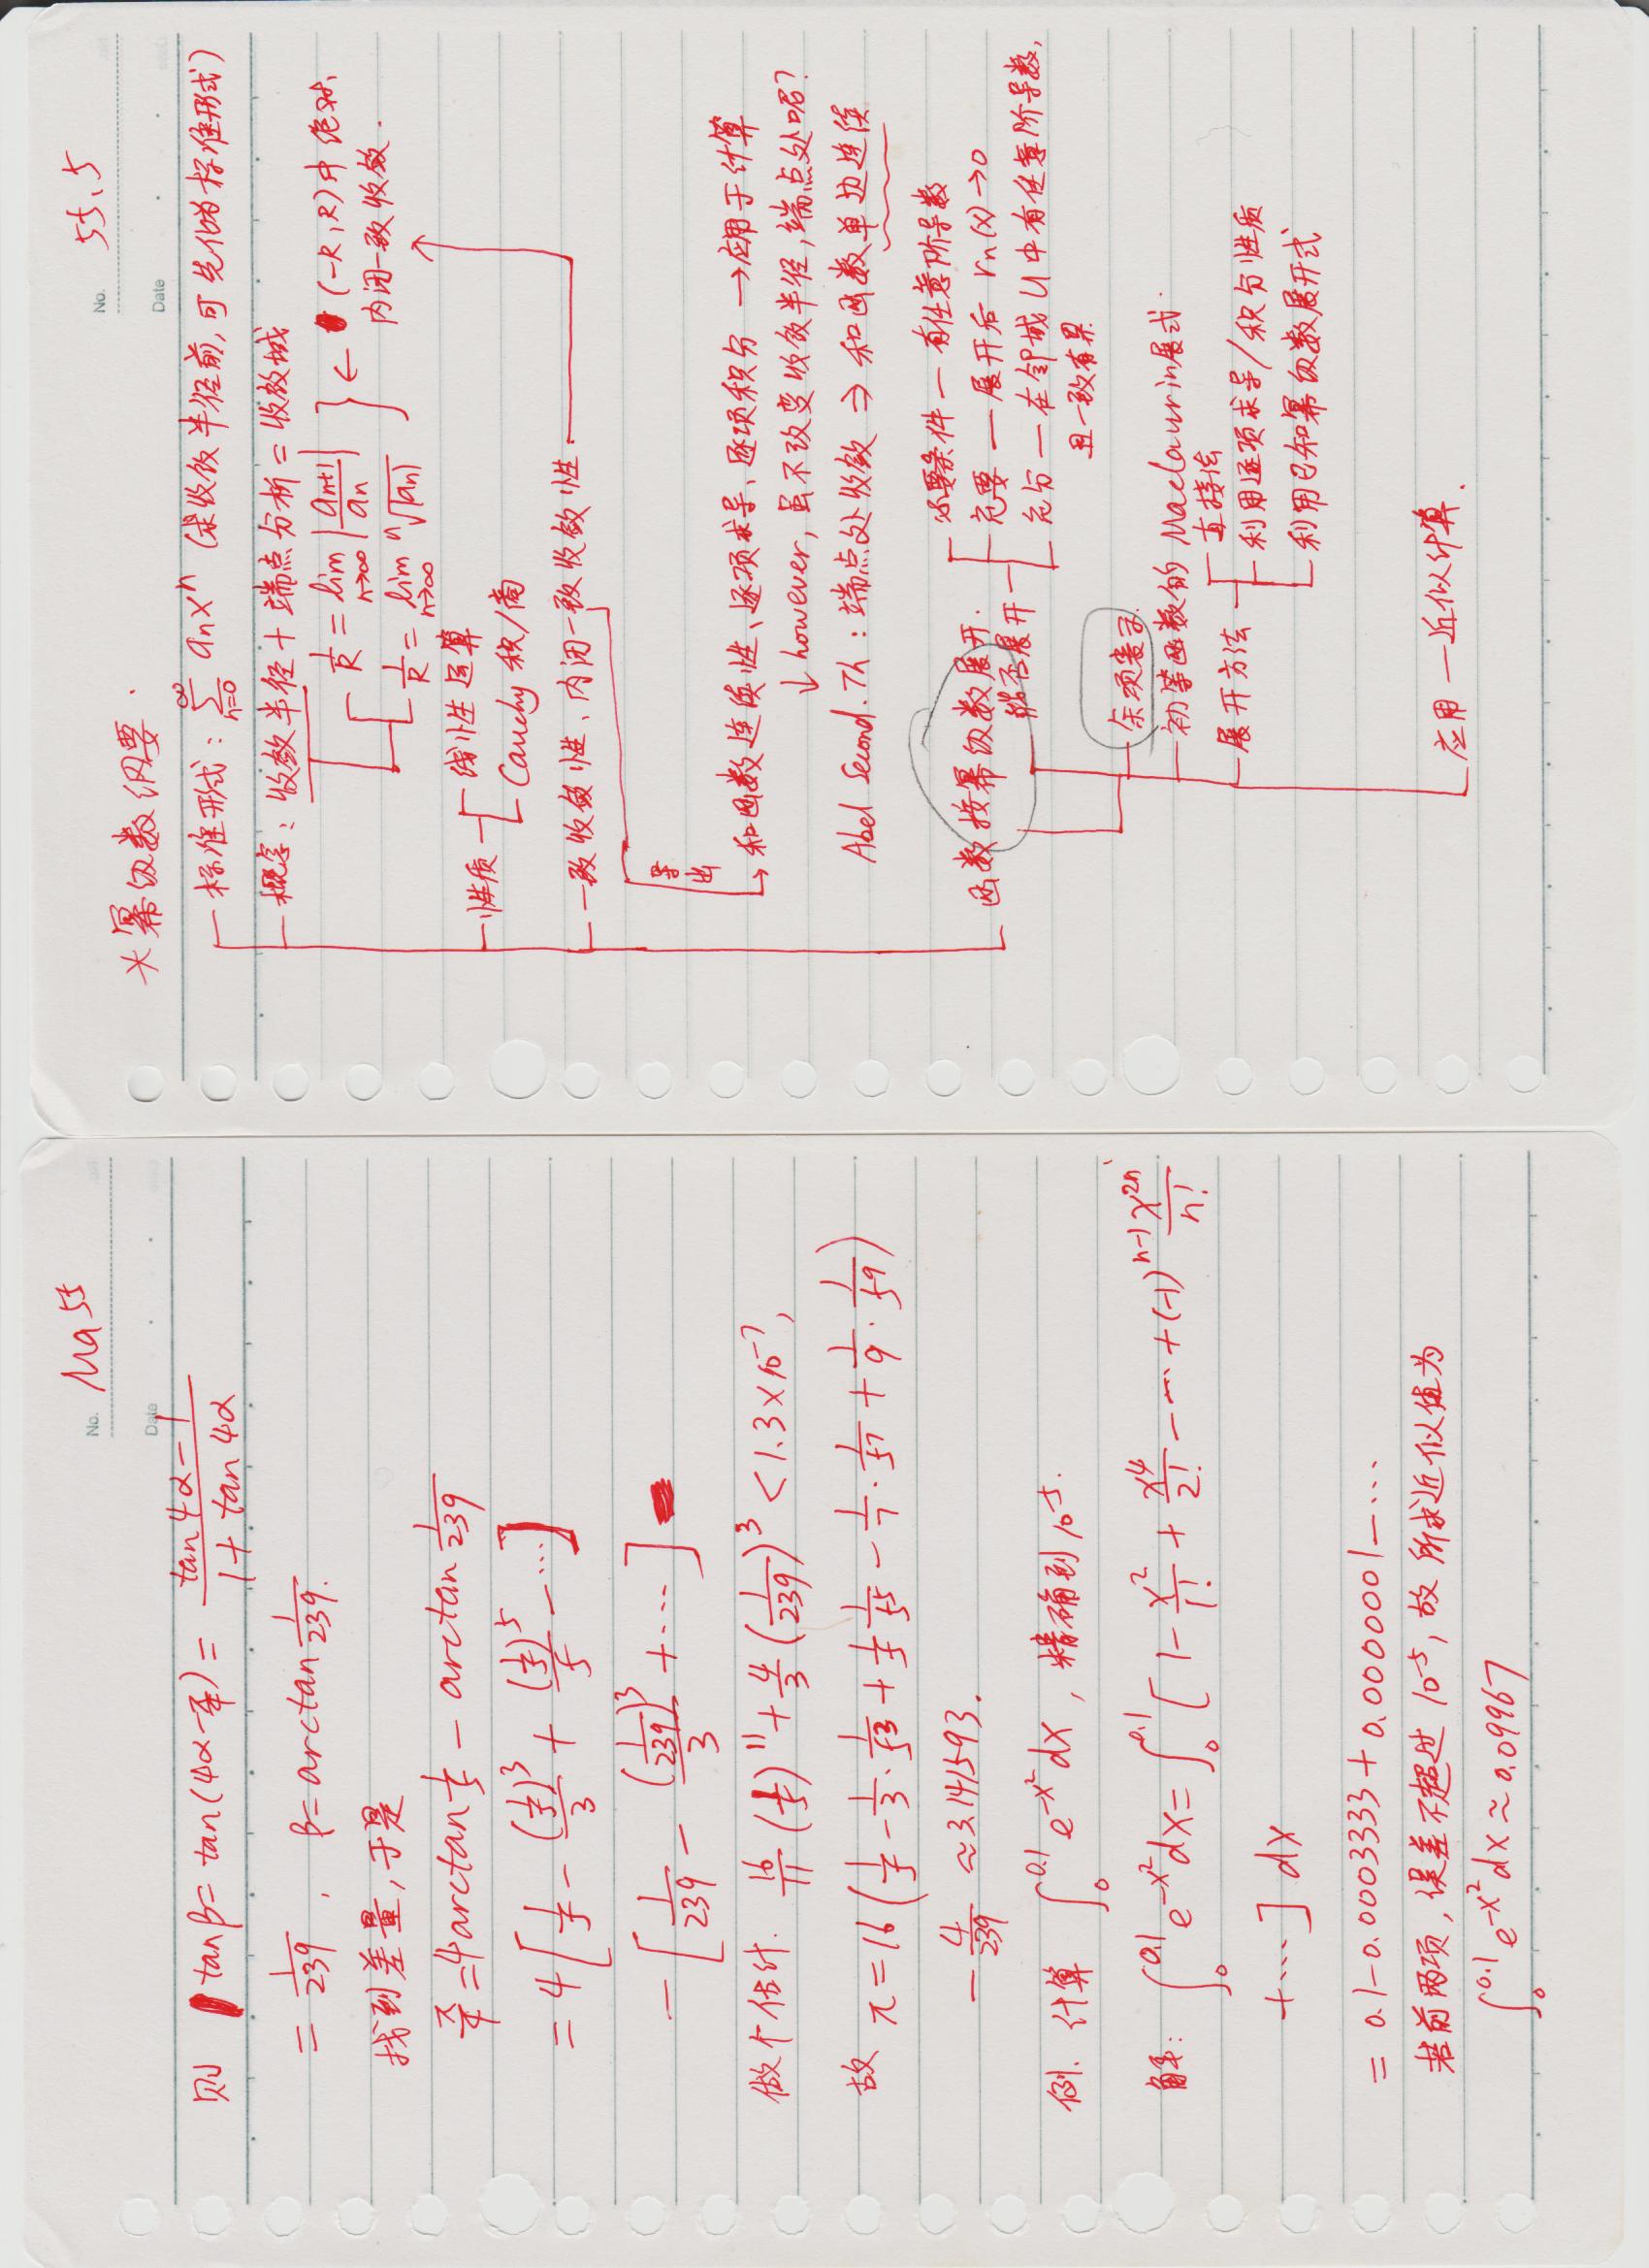 No. Ma55
Date
则 tanβ = tan(4α-π/4) = (tan4α-1)/(1+tan4α)
= 1/239 , β=arctan 1/239.
找到差量,于是
π/4 = 4arctan 1/5 - arctan 1/239
= 4[1/5 - (1/5)^3/3 + (1/5)^5/5 - ⋯]
- [1/239 - (1/239)^3/3 + ⋯]
做个估计. 16/11 (1/5)^11 + 4/3 (1/239)^3 < 1.3×10^-7,
故 π = 16(1/5 - 1/3·1/5^3 + 1/5 1/5^5 - 1/7·1/5^7 + 1/9·1/5^9)
- 4/239 ≈3.141593.
例. 计算 ∫_0^0.1 e^-x^2 dx, 精确到10^-5.
解: ∫_0^0.1 e^-x^2 dx = ∫_0^0.1 [1 - x^2/1! + x^4/2! - ⋯ + (-1)^n-1 x^2n/n!
+⋯] dx
= 0.1-0.0003333+0.0000001-⋯
若前两项,误差不超过10^-5,故所求近似值为
∫_0^0.1 e^-x^2 dx ≈ 0.09967
No. 55.5
Date
*幂级数纲要.
标准形式: ∑_n=0^∞ anx^n (求收敛半径前,可先化为标准形式)
概念: 收敛半径+端点分析=收敛域
1/R = lim_n→∞ |an+1/an|
1/R = lim_n→∞ ^n√|an|
← (-R,R)中绝对、
内闭一致收敛.
性质
线性运算
Cauchy 积/商
一致收敛性、内闭一致收敛性.
导出
和函数连续性、逐项求导、逐项积分 → 应用于计算
↓ however, 虽不改变收敛半径,端点处呢?
Abel Second. Th : 端点处收敛 ⇒ 和函数单边连续
函数按幂级数展开.
能否展开
必要条件 — 有任意阶导数
充要 — 展开后 rn(x)→0
充分 — 在邻域U中有任意阶导数,
且一致有界
余项表示.
初等函数的 Maclaurin展式.
展开方法
直接法
利用逐项求导/积分性质
利用已知幂级数展开式
应用 — 近似计算.